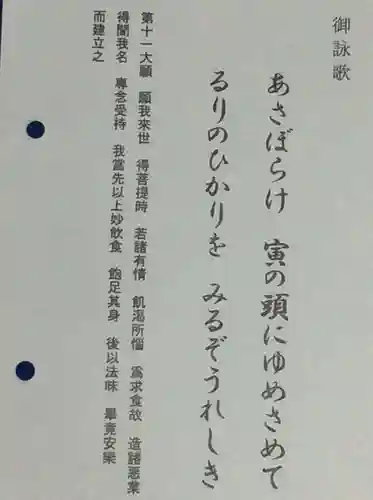 御詠歌
あさぼらけ 寅の頭にゆめさめて
るりのひかりを みるぞうれしき
第十一大願 願我來世 得菩提時 若諸有情 飢渇所惱 爲求食故 造諸悪業
得聞我名 專念受持 我當先以上妙飲食 飽足其身 後以法味 畢竟安樂
而建立之